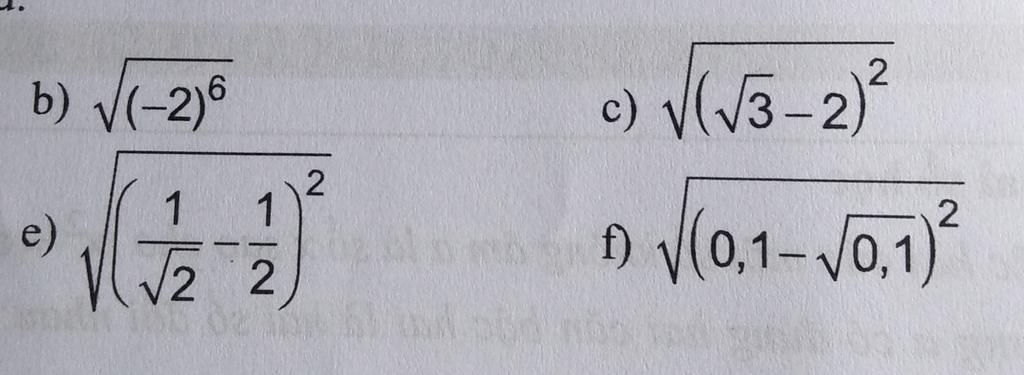 b) √(−2)⁶ c) √(√3 − 2)²
e) √(1/√2 − 1/2)² f) √(0,1 − √0,1)²